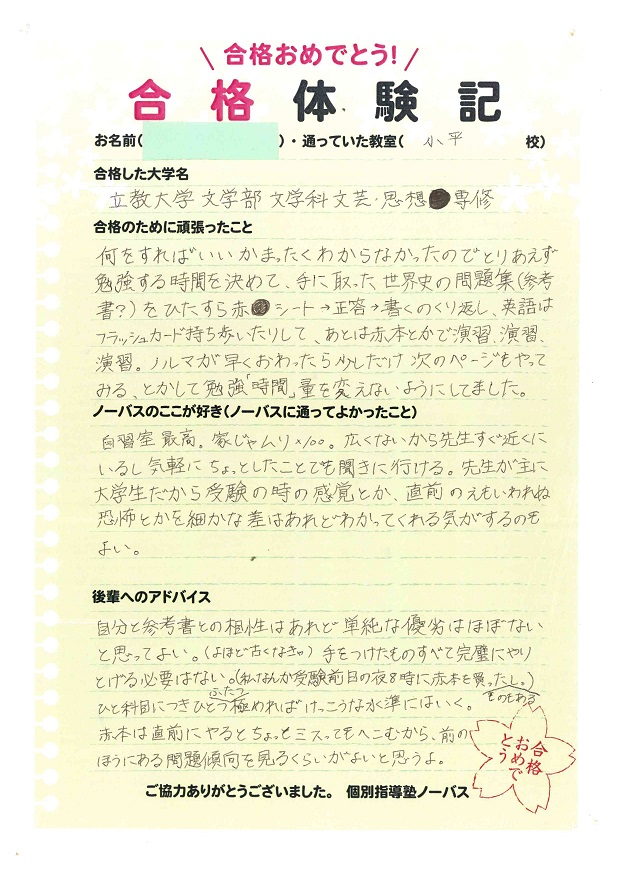 合格おめでとう!
合格体験記
お名前( )・通っていた教室( 小平 校)
合格した大学名
立教大学 文学部 文学科 文芸・思想 専修
合格のために頑張ったこと
何をすればいいかまったくわからなかったのでとりあえず
勉強する時間を決めて、手に取った世界史の問題集(参考
書?)をひたすら赤 シート→正答→書くのくり返し、英語は
フラッシュカード持ち歩いたりして、あとは赤本とかで演習、演習、
演習。ノルマが早くおわったら少しだけ次のページをやって
みる、とかして勉強「時間」量を変えないようにしてました。
ノーバスのここが好き(ノーバスに通ってよかったこと)
自習室最高。家じゃムリ×100。広くないから先生すぐ近くに
いるし気軽にちょっとしたことでも聞きに行ける。先生が主に
大学生だから受験の時の感覚とか、直前のえもいわれぬ
恐怖とかを細かな差はあれどわかってくれる気がするのも
よい。
後輩へのアドバイス
自分と参考書との相性はあれど単純な優劣はほぼない
と思ってよい。(よほど古くなきゃ)手をつけたものすべて完璧にやり
とげる必要はない。(私なんか受験前日の夜8時に赤本を買ったし。)
ひと科目につきひとつ極めればけっこうな水準にはいく。
ふたつ
ものもある
赤本は直前にやるとちょっとミスってもへこむから、前の
ほうにある問題傾向を見るくらいがよいと思うよ。
合格
おめで
とう
ご協力ありがとうございました。 個別指導塾ノーバス